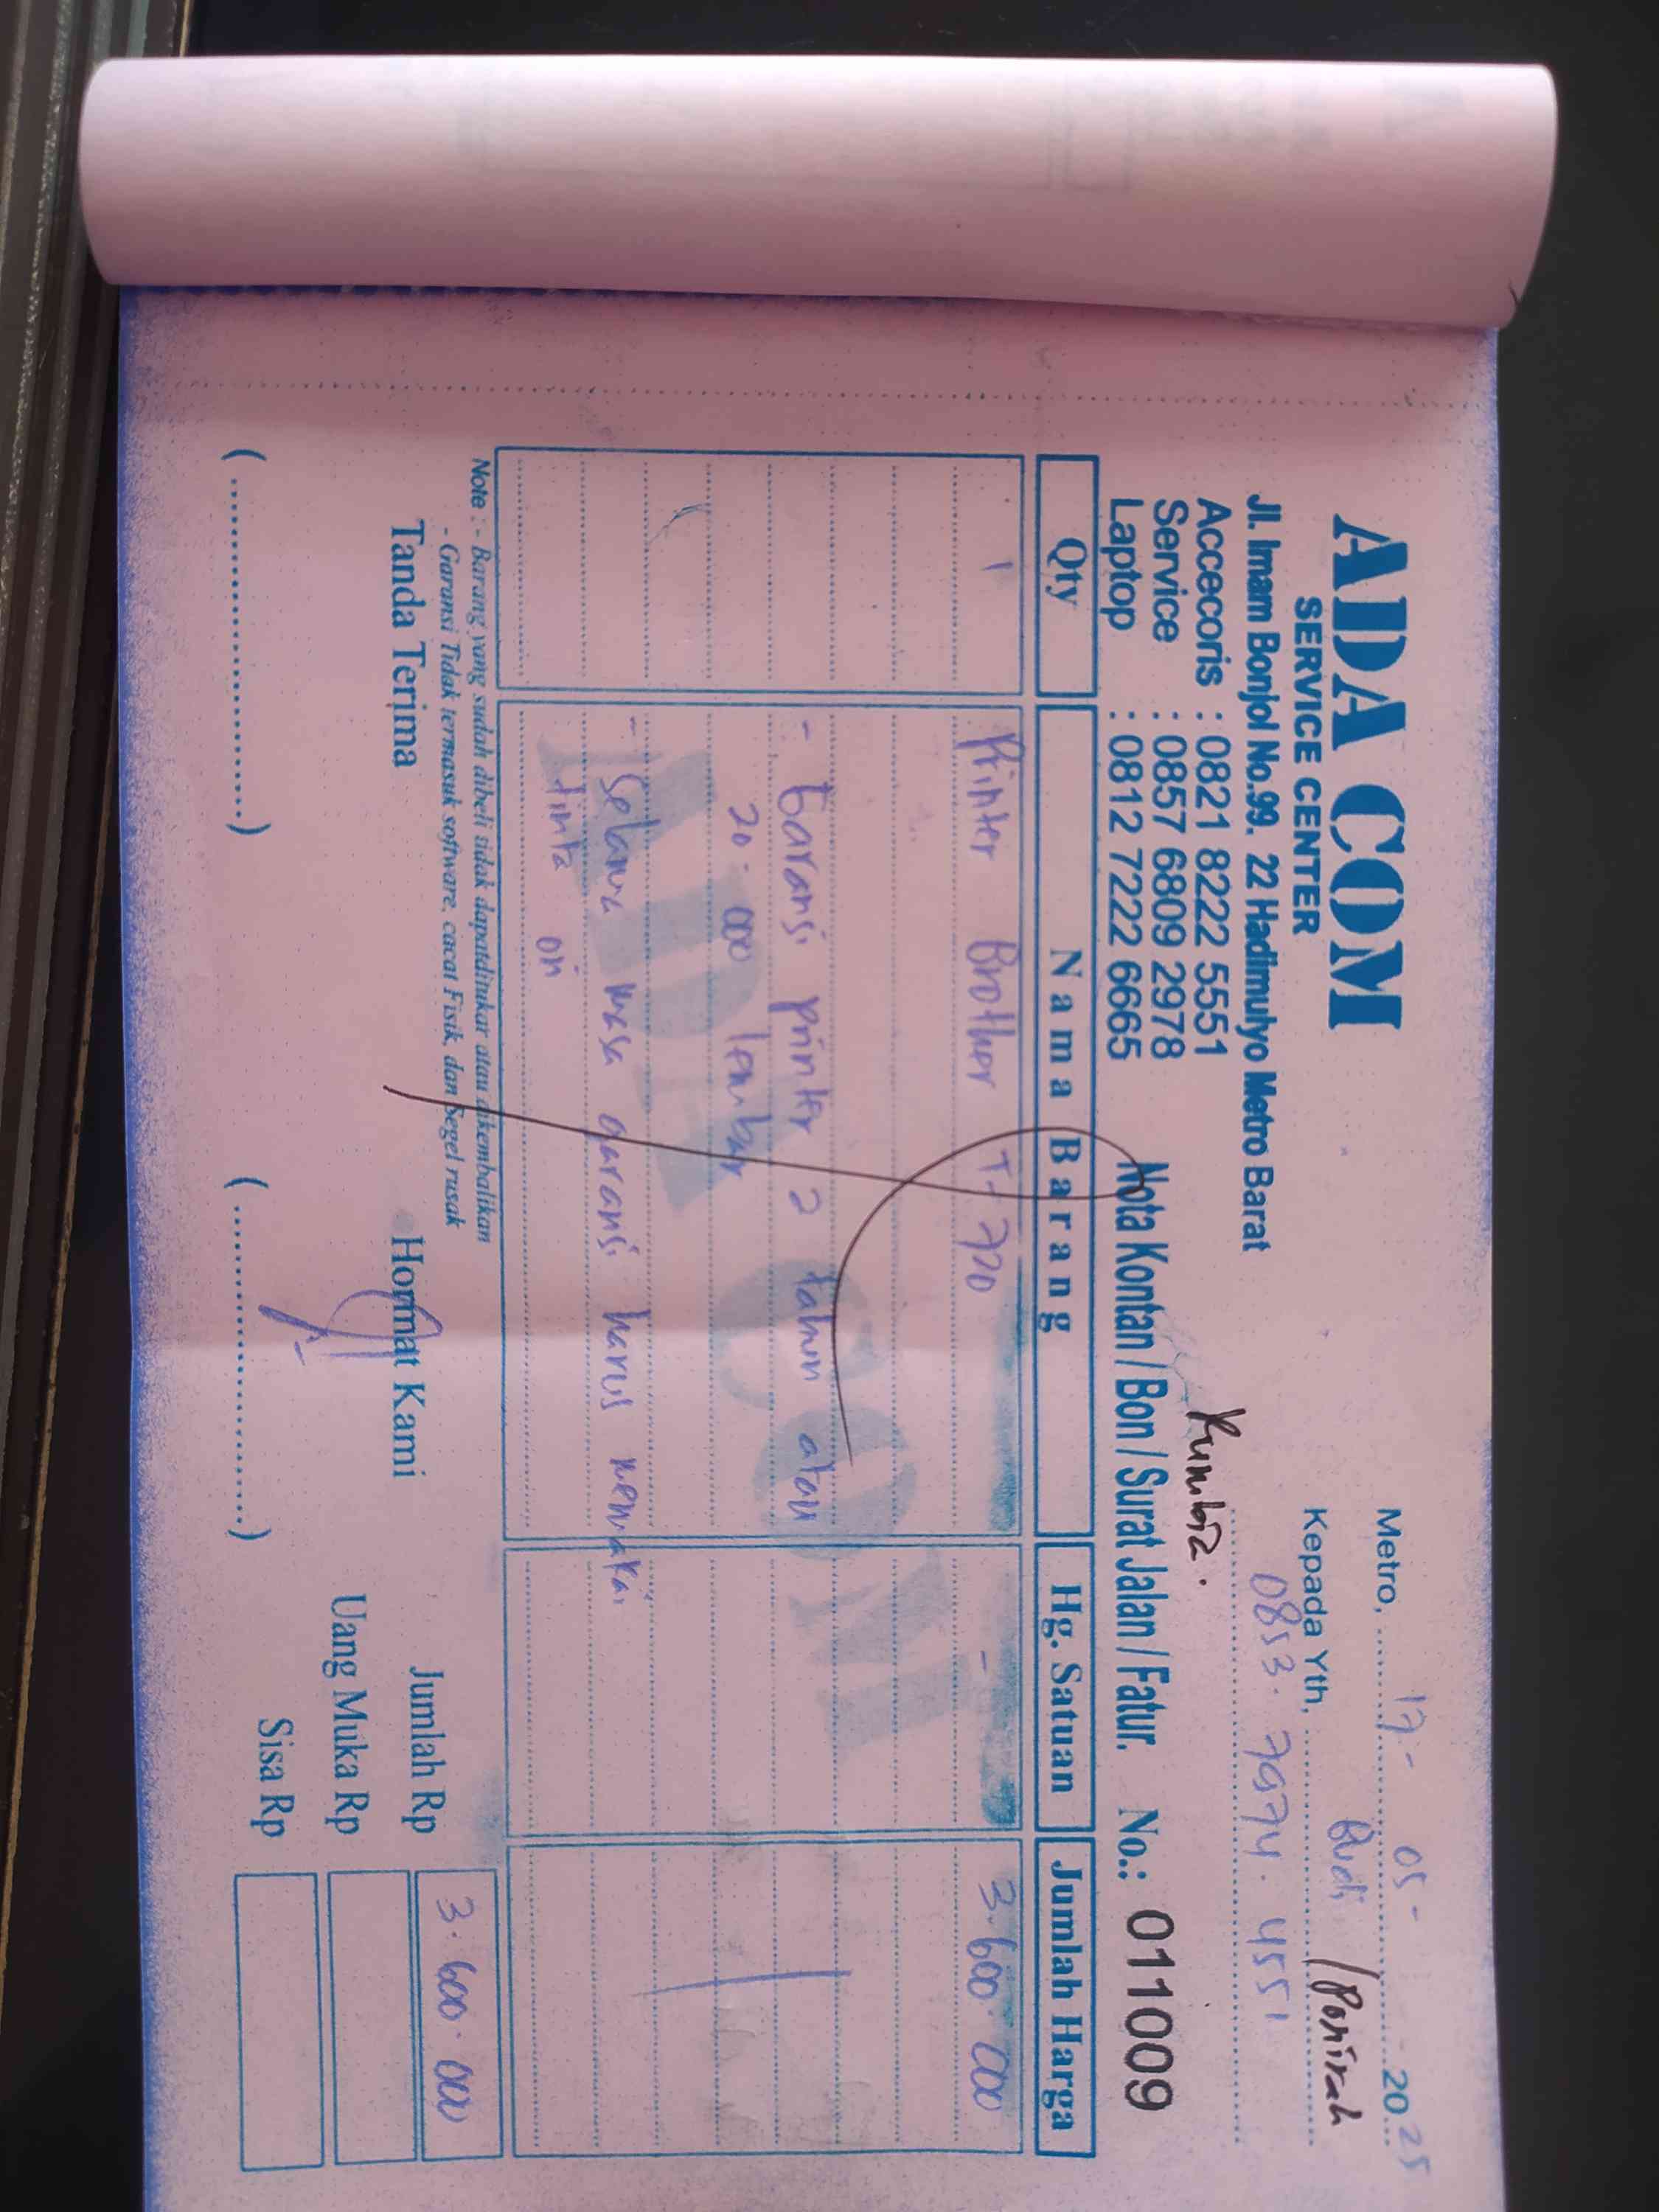 ADA COM
SERVICE CENTER
Jl. Imam Bonjol No.99. 22 Hadimulyo Metro Barat
Accecoris : 0821 8222 5551
Service : 0857 6809 2978
Laptop : 0812 7222 6665
Metro, 17 - 05 - 2025
Kepada Yth, Budi / Ponirah
0853. 7974. 4551
Rumbia.
Nota Kontan / Bon / Surat Jalan / Fatur. No.: 011009
Qty Nama Barang Hg. Satuan Jumlah Harga
1 Printer Brother T-720 - 3.600.000
- Garansi printer 2 tahun atau
20.000 lembar
- Selama masa garansi harus memakai
tinta ori
Note : - Barang yang sudah dibeli tidak dapatditukar atau dikembalikan
- Garansi Tidak termasuk software, cacat Fisik, dan Segel rusak
Tanda Terima Hormat Kami
Jumlah Rp 3.600.000
Uang Muka Rp
Sisa Rp
(....................) (....................)
ADA COM